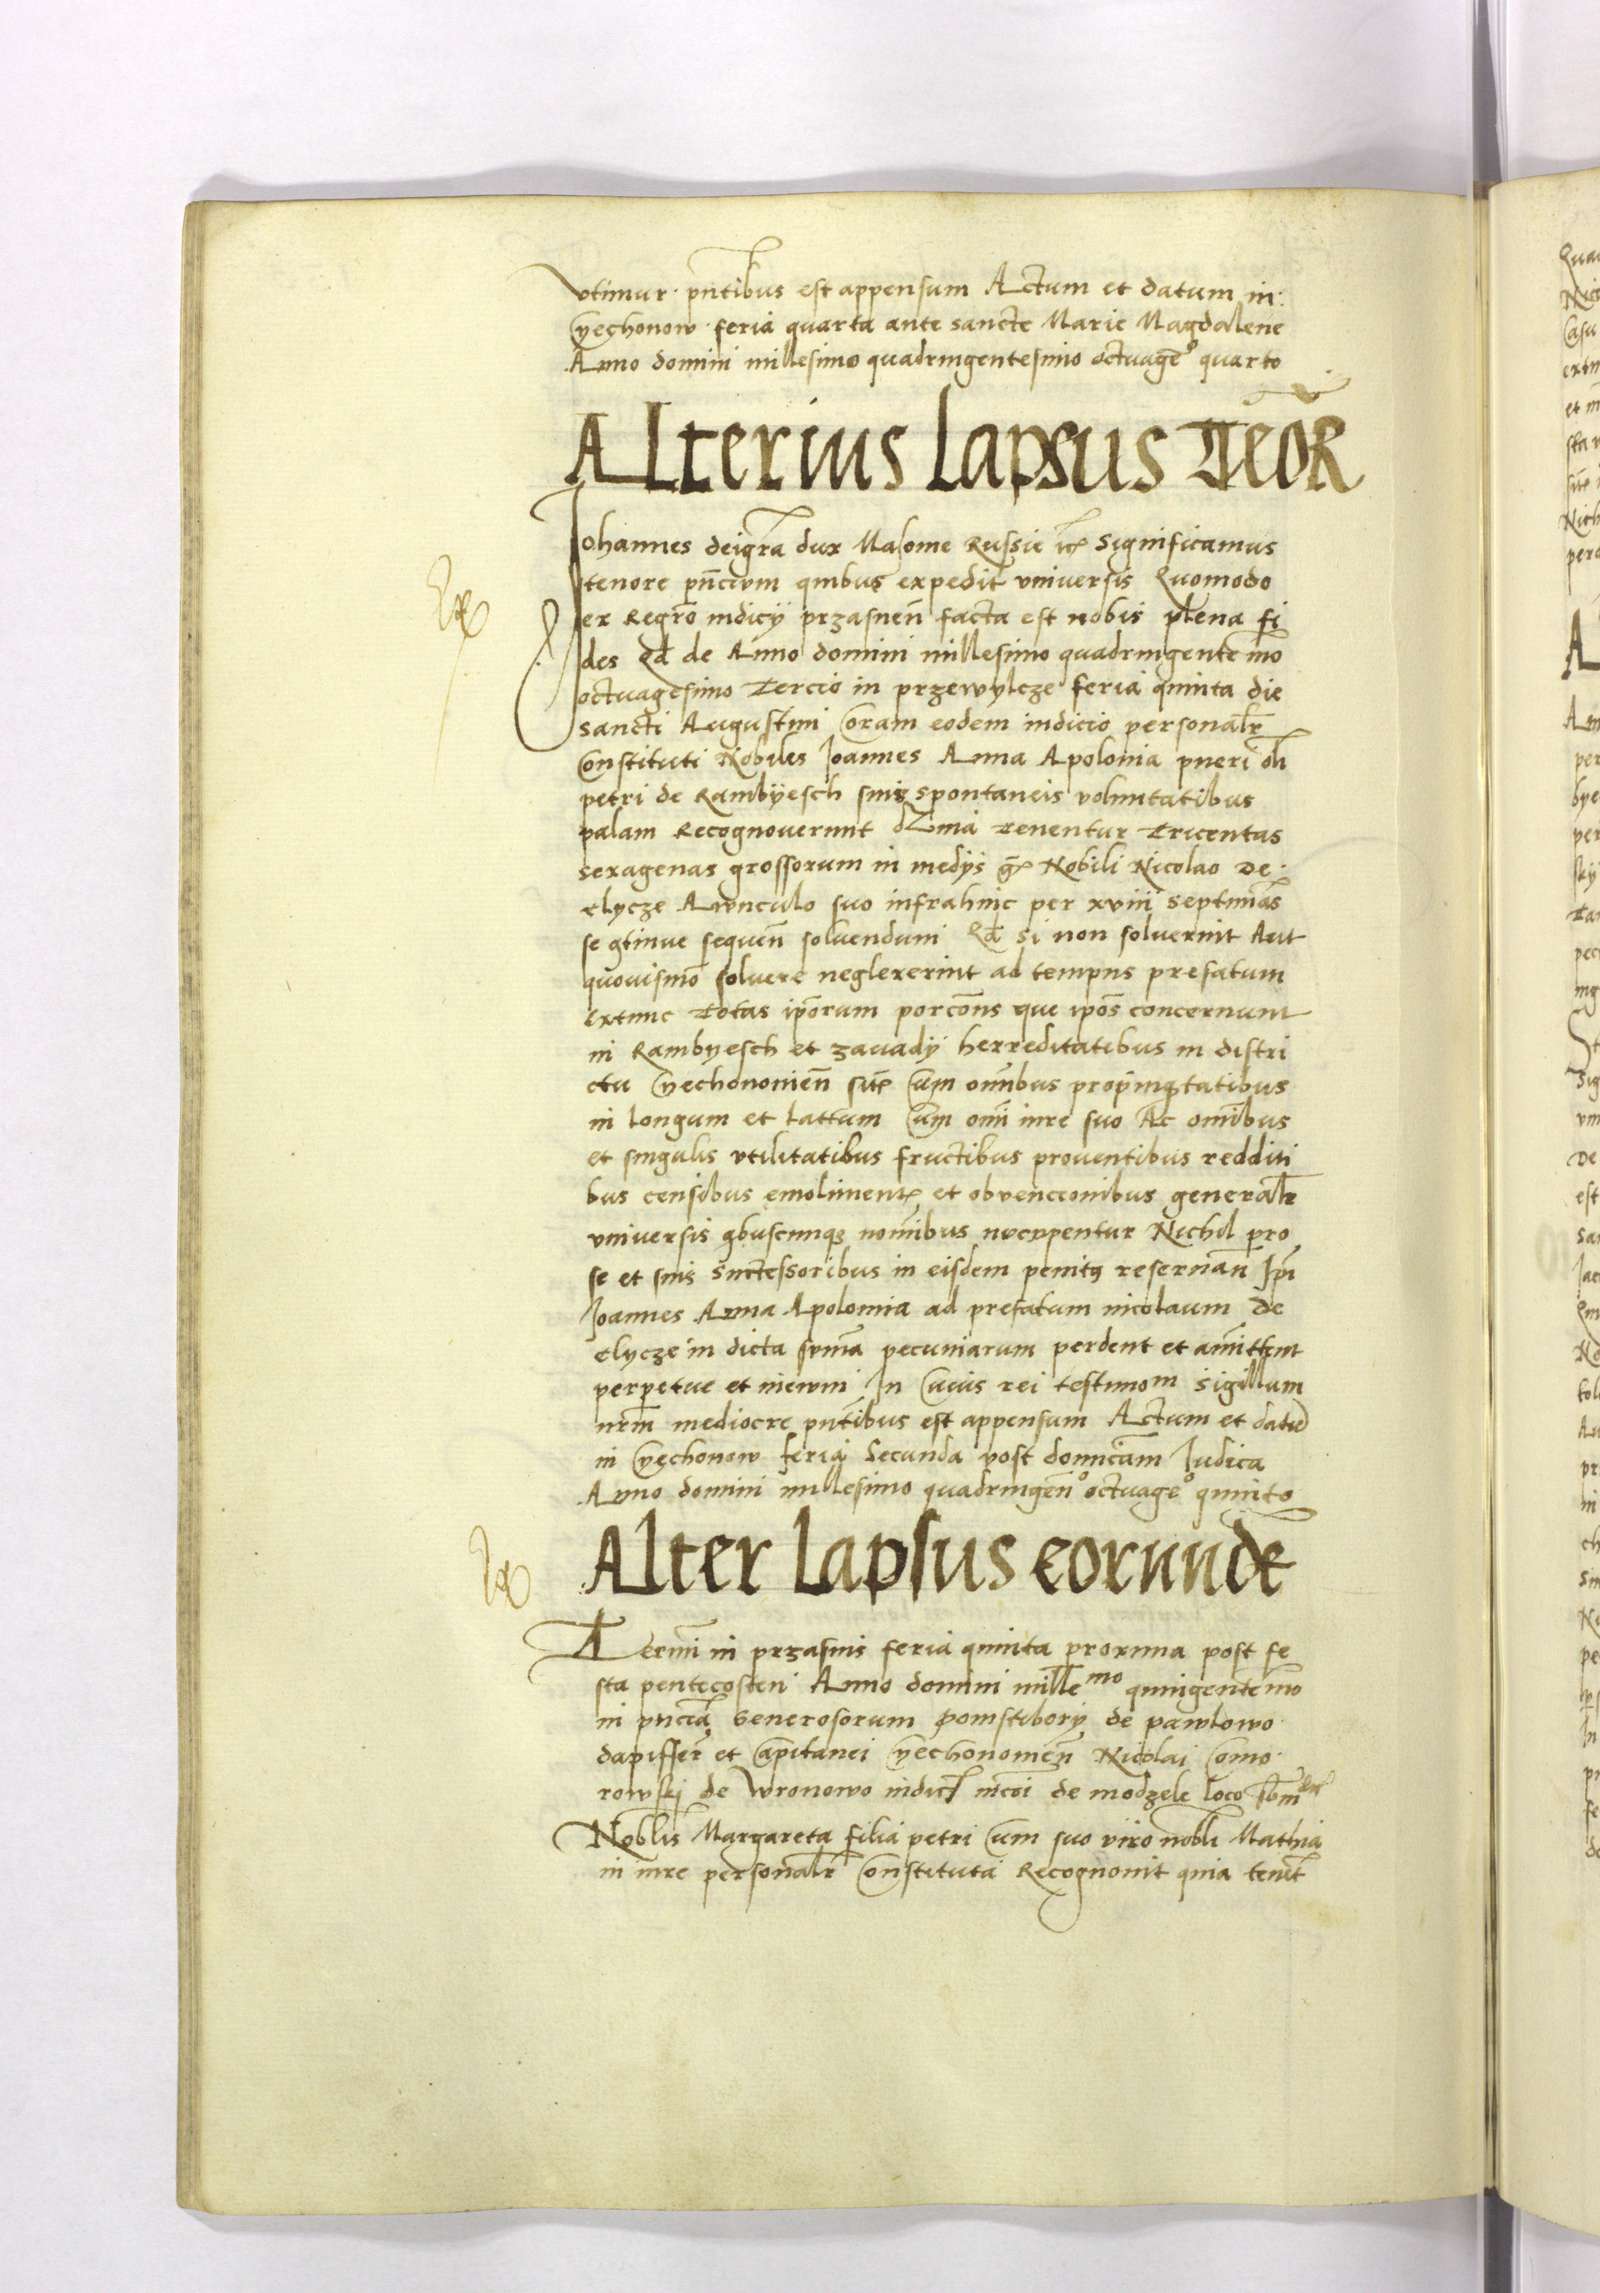 vtimur pñtibus est appensum Actum et datum in
Cyechonow feria quarta ante sancte Marie Magdalene
Anno domini millesimo quadringentesimo octuageº quarto
Alterius Lapsus Teor
Johannes dei gra dux Masouie Russie etc Significamus
tenore pñcium quibus expedit vniuersis Quomodo
ex Regro iudicij przasnen facta est nobis plena fi
des Qd de Anno domini millesimo quadringentemo
octuagesimo Tercio in przewylcze feria quinta die
sancti Augustini Coram eodem iudicio personalr
Constituti Nobiles Joannes Anna Apolonia pueri oli
petri de Rambyesch suis spontaneis voluntatibus
palam Recognouerunt quia tenentur Tricentas
sexagenas grossorum in medijs gr Nobili Nicolao De
elycze Awnculo suo infra hinc per xviii septimas
se gtinue sequen soluendum Qd si non soluerint Aut
quouismo soluere neglexerint ad tempus prefatum
Extunc Totas iporum porcons que ipos concernunt
in Rambyesch et zauady herreditatibus in distri
ctu Cyechonouien site Cum omnibus propinqtatibus
in longum et lattum Cum omi iure suo Ac omibus
et singulis vtilitatibus fructibus prouentibus redditi
bus censibus emoliment et obuencionibus generalr
vniuersis qbuscunq nomibus nuccupentur Nichil pro
se et suis Successoribus in eisdem penitq reseruan Ipi
Joannes Anna Apolonia ad prefatum nicolaum De
elycze in dicta suma pecuniarum perdent et amittent
perpetue et in ewm In Cuius rei testimom Sigillum
nrm mediocre pntibus est appensum Actum et datu
in Cyechonow feria Secunda post domicam Judica
Anno domini millesimo quadringenº octuageº quinto
Alter Lapsus eorunde
Termi in przasnis feria quinta proxima post fe
sta pentecosten Anno domini millemo quingentemo
in pncia Generosorum Pomstibory de pawlowo
dapifferi et Capitanei Cyechonomen Nicolai Como
rowskj de Wronowo iudic nicoi de modzele loco sbm
Noblis Margareta filia petri Cum suo viro nobli Mathia
in iure personalr Constituta Recognouit quia tenet